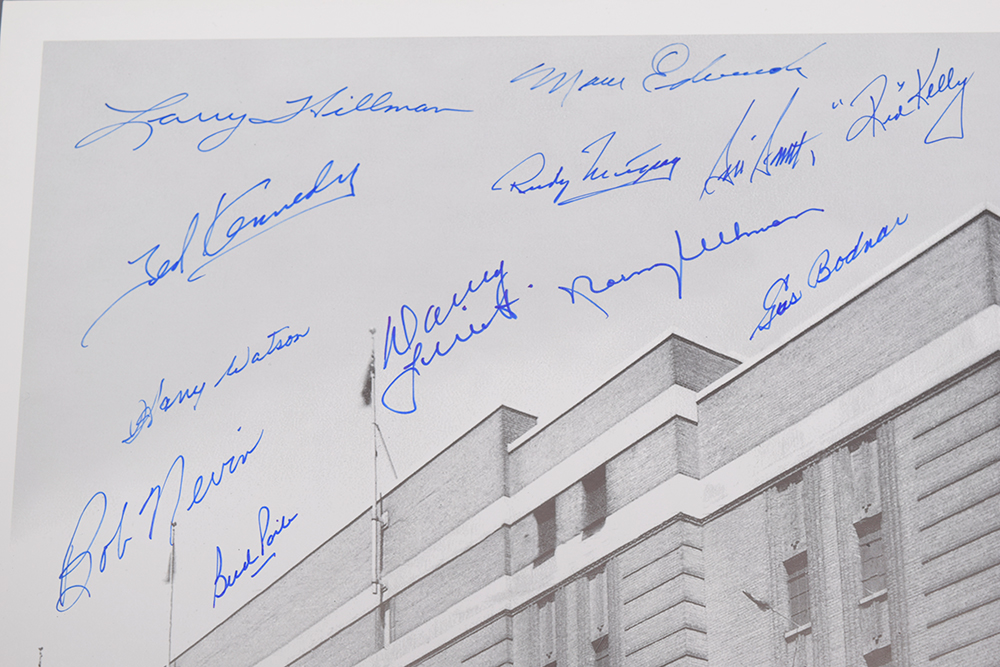 Larry Hillman
Marv Edwards
"Red" Kelly
Sid Smith,
Rudy Migay
Ted Kennedy
Danny
Lewicki.
Gus Bodnar
Harry Watson
Bob Nevin
Bud Poile